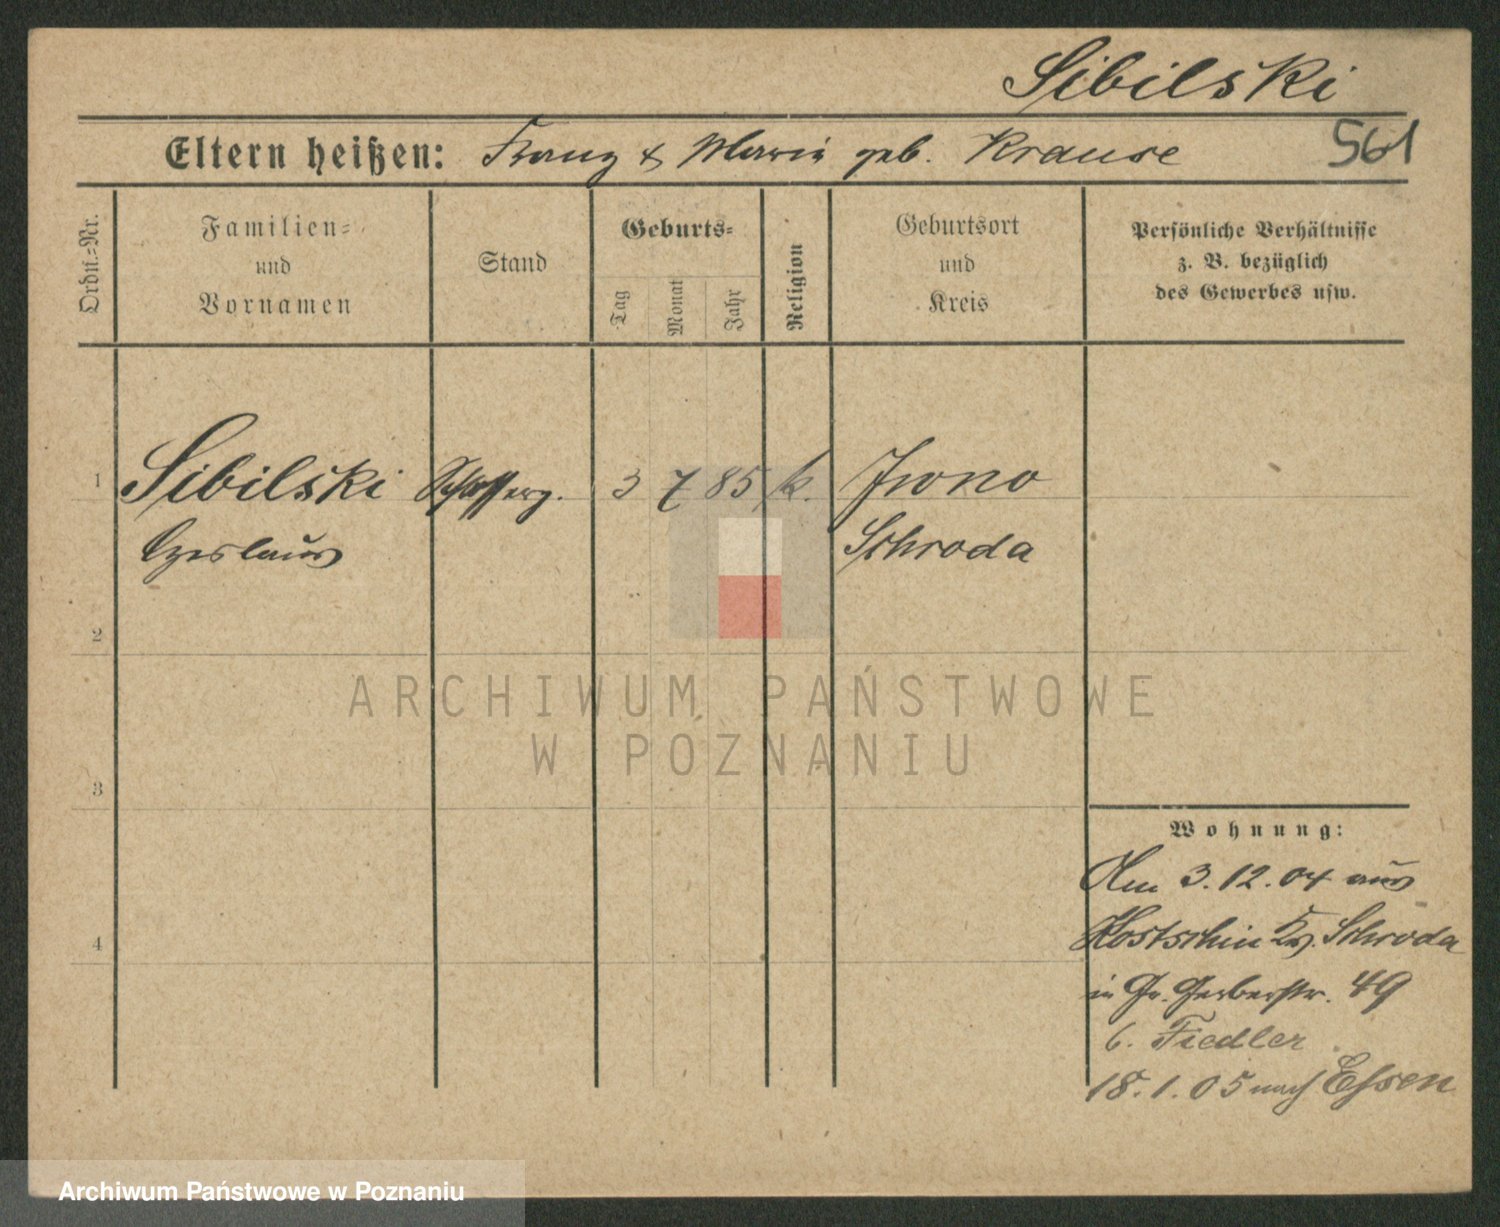 Sibilski
Eltern heißen: Franz & Maria geb. Krause 561
Ordn.=Nr.
Familien=
und
Vornamen
Stand
Geburts=
Tag
Monat
Jahr
Religion
Geburtsort
und
Kreis
Persönliche Verhältnisse
z. B. bezüglich
des Gewerbes usw.
1 Sibilski Schlosserg. 3 7 85 k. Iwno
Czeslaus Schroda
2
3
4
Wohnung:
Am 3.12.04 aus
Kostschin Kr. Schroda
in Gr. Gerberstr. 49
b. Fiedler
18.1.05 nach Essen
ARCHIWUM PAŃSTWOWE
W POZNANIU
Archiwum Państwowe w Poznaniu